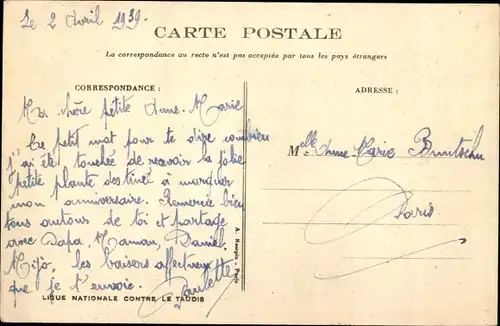 Le 2 Avril 1939.
CARTE POSTALE
La correspondance au recto n'est pas acceptée par tous les pays étrangers
CORRESPONDANCE :
Ma chère petite Anne-Marie
Ce petit mot pour te dire combien
j'ai été touchée de recevoir la jolie
petite plante destinée à marquer
mon anniversaire. Remercie bien
tous autour de toi et partage
avec Papa, Maman, Daniel,
Mijo, les baisers affectueux
que je t'envoie.
Paulette
LIGUE NATIONALE CONTRE LE TAUDIS
A. - Paris
ADRESSE :
Melle Anne-Marie
Paris